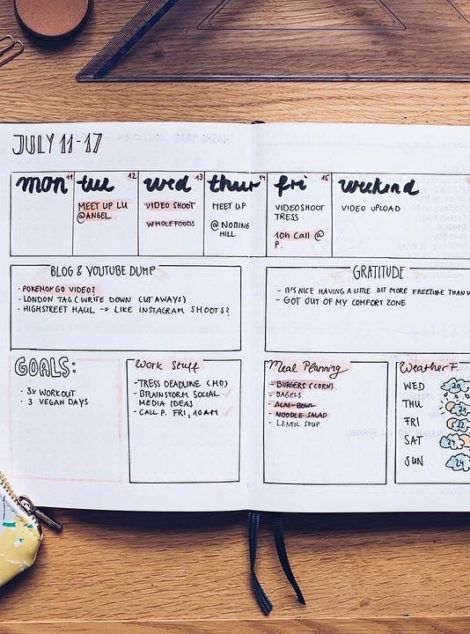 JULY 11-17
mon 11
tue 12
wed 13
thur 14
fri 15
weekend
MEET UP LU
@ANGEL
VIDEO SHOOT
WHOLEFOODS
MEET UP
@ NOTTING
HILL
VIDEOSHOOT
TRESS
10h Call @
P.
VIDEO UPLOAD
BLOG & YOUTUBE DUMP
- POKEMON GO VIDEO?
- LONDON TAG (WRITE DOWN CUT AWAYS)
- HIGHSTREET HAUL → LIKE INSTAGRAM SHOOTS?
GRATITUDE
- IT'S NICE HAVING A LITTLE BIT MORE FREETIME THAN
- GOT OUT OF MY COMFORT ZONE
GOALS:
• 3x WORKOUT
• 3 VEGAN DAYS
Work Stuff
- TRESS DEADLINE (MO)
- BRAINSTORM SOCIAL
MEDIA IDEAS
- CALL P. FRI, 10AM
Meal Planning
- BURGERS (CORN)
- BAGELS
- ACAI-BOWL
- NOODLE SALAD
- LENTIL SOUP
Weather F.
WED 20
THU
FRI 25
SAT 24
SUN 24